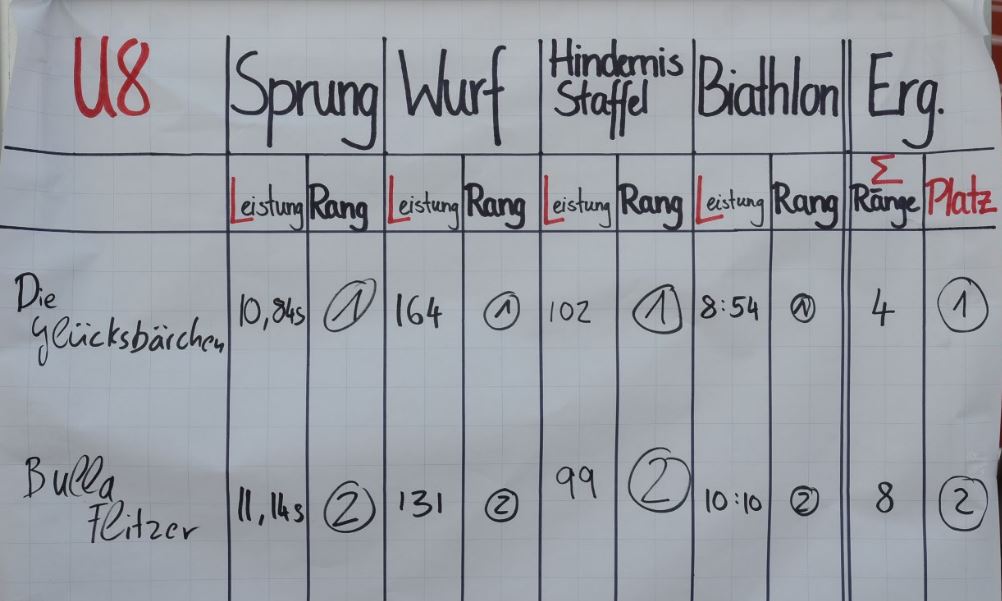 U8 Sprung Wurf Hindernis Staffel Biathlon Erg.
Leistung Rang Leistung Rang Leistung Rang Leistung Rang Σ Ränge Platz
Die
Glücksbärchen 10,84s 1 164 1 102 1 8:54 1 4 1
Bulla
Flitzer 11,14s 2 131 2 99 2 10:10 2 8 2